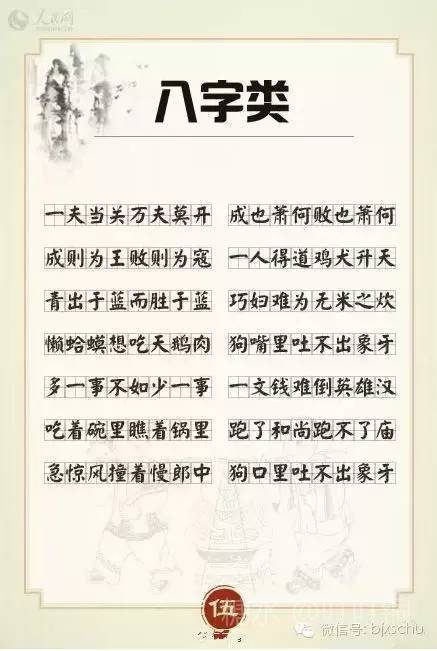 人民网
八字类
一夫当关万夫莫开 成也萧何败也萧何
成则为王败则为寇 一人得道鸡犬升天
青出于蓝而胜于蓝 巧妇难为无米之炊
懒蛤蟆想吃天鹅肉 狗嘴里吐不出象牙
多一事不如少一事 一文钱难倒英雄汉
吃着碗里瞧着锅里 跑了和尚跑不了庙
急惊风撞着慢郎中 狗口里吐不出象牙
伍
微信号: bjxschu